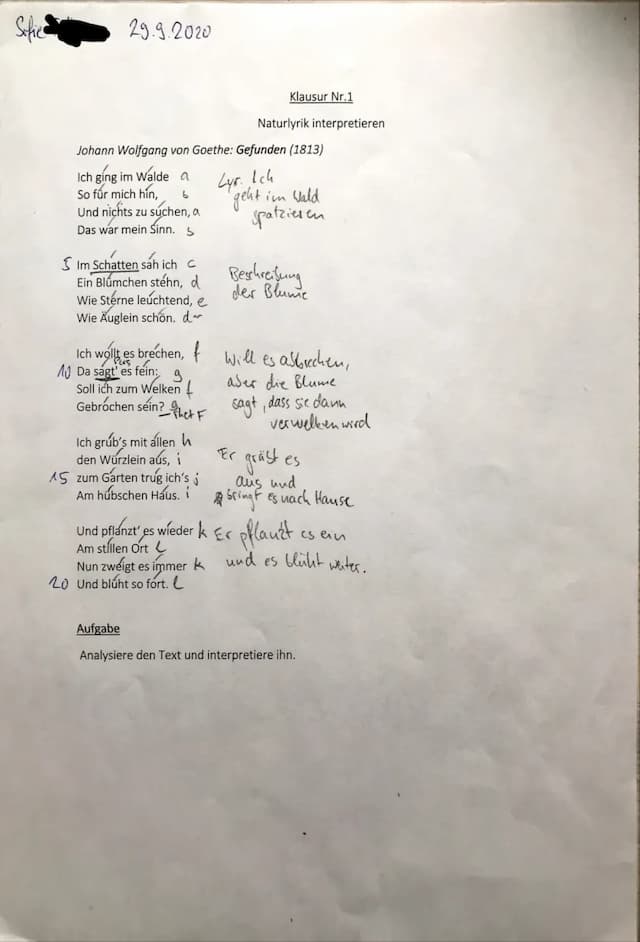 Sofie 29.9.2020
Klausur Nr.1
Naturlyrik interpretieren
Johann Wolfgang von Goethe: Gefunden (1813)
Ich ging im Walde a Lyr. Ich
So für mich hin, b geht im Wald
Und nichts zu suchen, a spatzieren
Das war mein Sinn. b
5 Im Schatten sah ich c Beschreibung
Ein Blümchen stehn, d der Blume
Wie Sterne leuchtend, e
Wie Äuglein schön. d
Ich wollt es brechen, f Will es abbrechen,
10 Da sagt' es fein: g aber die Blume
Soll ich zum Welken f sagt, dass sie dann
Gebrochen sein? g rhet F verwelken wird
Ich grub's mit allen h
den Würzlein aus, i Er gräbt es
15 zum Garten trug ich's j aus und
Am hübschen Haus. i bringt es nach Hause
Und pflanzt' es wieder k Er pflanzt es ein
Am stillen Ort l und es blüht weiter.
Nun zweigt es immer k
20 Und blüht so fort. l
Aufgabe
Analysiere den Text und interpretiere ihn.